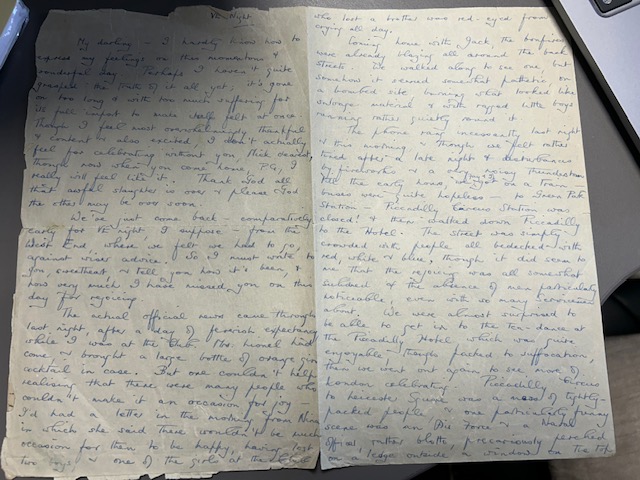 VE-Night
My darling - I hardly know how to
express my feelings on this momentous &
wonderful day. Perhaps I haven't quite
grasped the truth of it all yet; it's gone
on too long & with too much suffering for
its full impact to make itself felt at once
Though I feel most overwhelmingly thankful
& content & also excited I don't actually
feel for celebrating without you think dearest,
though now when you come home, P.G.,
really will feel like it. Thank God all
that awful slaughter is over & please God
the other may be over soon.
We've just come back - comparatively
early for VE night I suppose - from the
West End, where we felt we had to go,
against wiser advice. So I must write to
you, sweetheart, & tell you how it's been, &
how very much I have missed you on this
day for rejoicing.
The actual official news came through
last night, after a day of feverish expectancy
while I was at the Club. Mrs. Lionel had
come, & brought a large bottle of orange gin
cocktail in case. But one couldn't help
realising that there were many people who
couldn't make it an occasion for joy -
I'd had a letter in the morning from
in which she said there wouldn't be much
occasion for them to be happy, having lost
two boys, & one of the girls at the
who lost a brother was red-eyed from
crying all day.
Coming home with Jack, the bonfires
were already blazing all around the back
streets; we walked along to see one, but
somehow it seemed somewhat pathetic on
a bombed site burning what looked like
salvage material & with ragged little boys
running rather quietly round it
The phone rang incessantly last night
& this morning & though we felt rather
tired after a late night & disturbances
by fireworks & a very noisy thunderstorm
till the early hours, we got on a train -
buses were quite hopeless - to Green Park
Station - Piccadilly Circus Station was
closed! & then walked down Piccadilly
to the Hotel. The street was simply
crowded with people all bedecked with
red, white & blue, though it did seem to
me that the rejoicing was all somewhat
subdued & the absence of men particularly
noticeable, even with so many servicemen
about. We were almost surprised to
be able to get in to the tea-dance at
the Piccadilly Hotel which was quite
enjoyable, though packed to suffocation,
then we went out again to see more of
London celebrating. Piccadilly Circus
to Leicester Square was a mass of tightly-
packed people & one particularly funny
scene was an Air Force & a Naval
Officer, rather blotto, precariously perched
on a ledge outside a window on the top